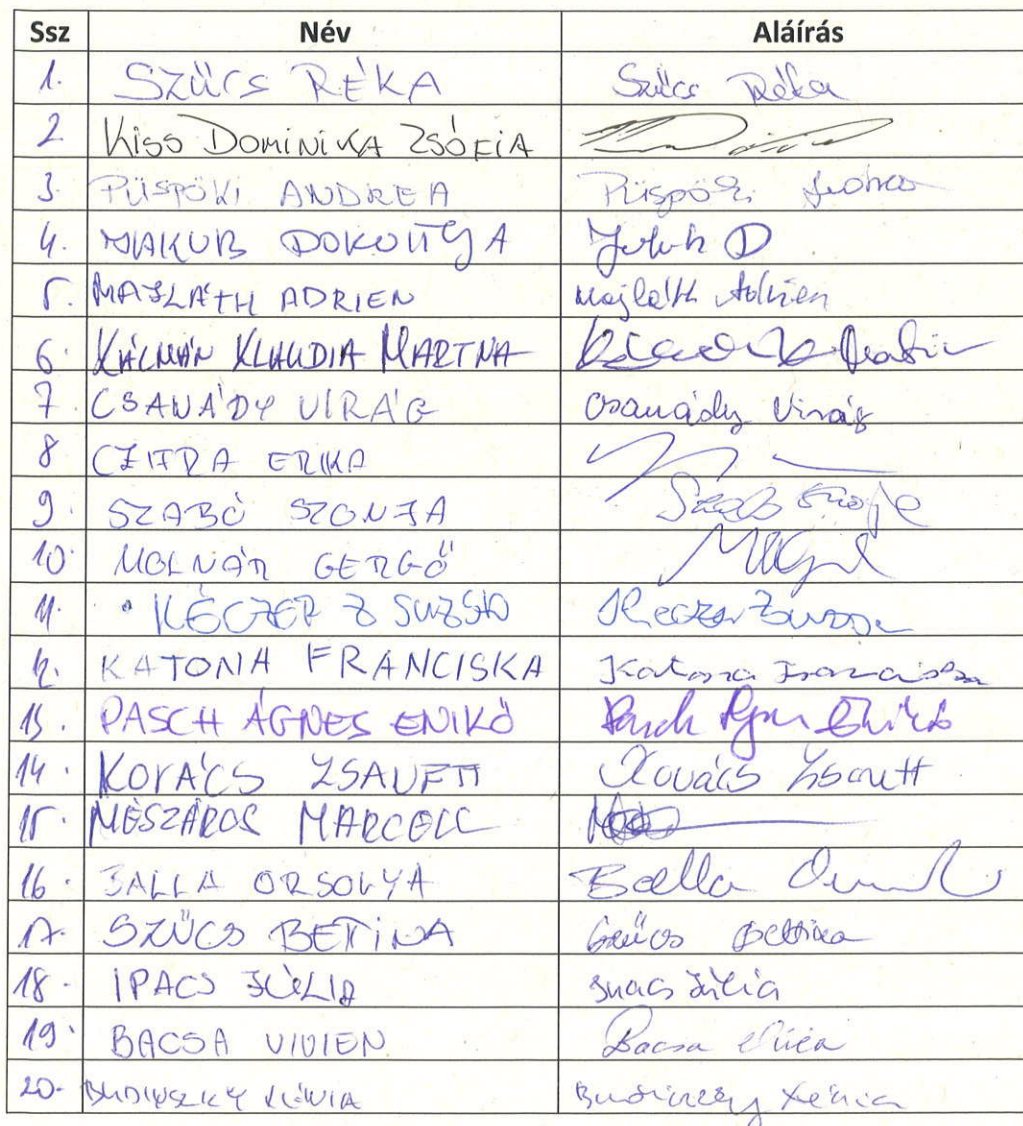 Ssz Név Aláírás
1. SZŰCS RÉKA Szűcs Réka
2 KISS DOMINIKA ZSÓFIA
3. PÜSPÖKI ANDREA Püspöki
4. JAKUB DOROTTYA Jakub D
5. MAJLÁTH ADRIEN Majláth Adrien
6. KÁLMÁN KLAUDIA MARTNA
7. CSANÁDY VIRÁG Csanády Virág
8 CZIFRA ERIKA
9. SZABÓ SZONJA Szabó Szonja
10 MOLNÁR GERGŐ
11. KÉCZER ZSUZSA Keczer Zsuzsa
12. KATONA FRANCISKA Katona Franciska
13. PASCH ÁGNES ENIKŐ Pasch Ágnes Enikő
14. KOVÁCS ZSANETT Kovács Zsanett
15. MÉSZÁROS MARCELL
16. BALLA ORSOLYA Balla
17. SZŰCS BETTINA Szűcs Bettina
18. IPACS JÚLIA Ipacs Júlia
19. BACSA VIVIEN Bacsa Vivien
20. BUDINSZKY XÉNIA Budinszky Xénia